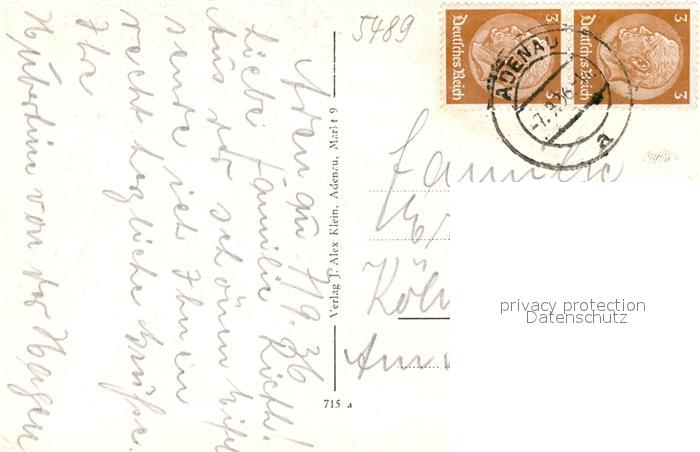 Adenau 7/9.36
Liebe Familie Lieth!
Aus der schönen Eifel
sende ich Ihnen
recht herzliche Grüße.
Ihre
von der Hagen
Verlag J. Alex Klein, Adenau, Markt 9
715 a
5489
Deutsches Reich 3 3
Deutsches Reich 3 3
ADENAU
-7.9.36
a
Familie
Köln
Am
privacy protection
Datenschutz